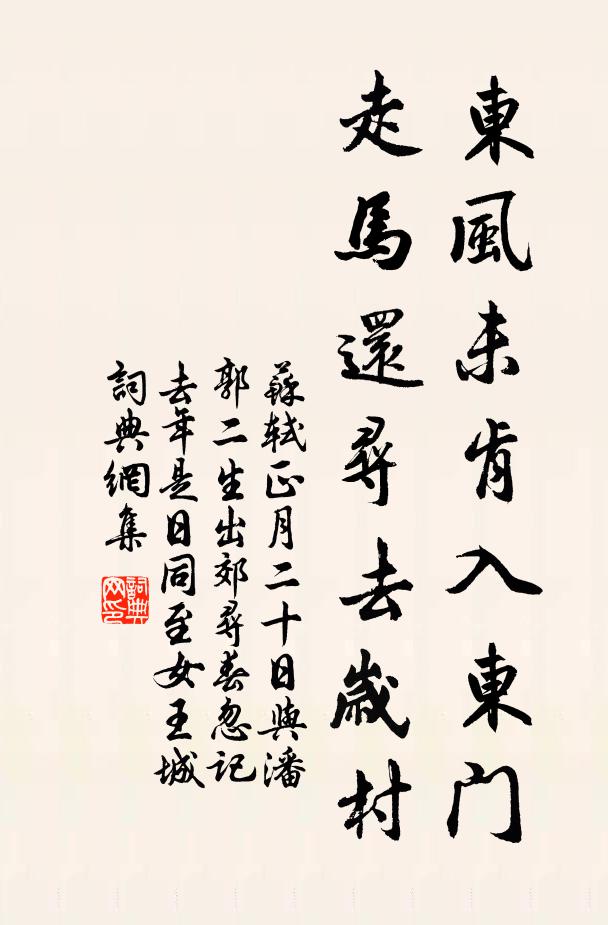 東風未肯入東门
走馬還尋去歲村
蘇軾正月二十日與潘
郭二生出郊尋春忽记
去年是日同至女王城
詞典網集
詞典
网印